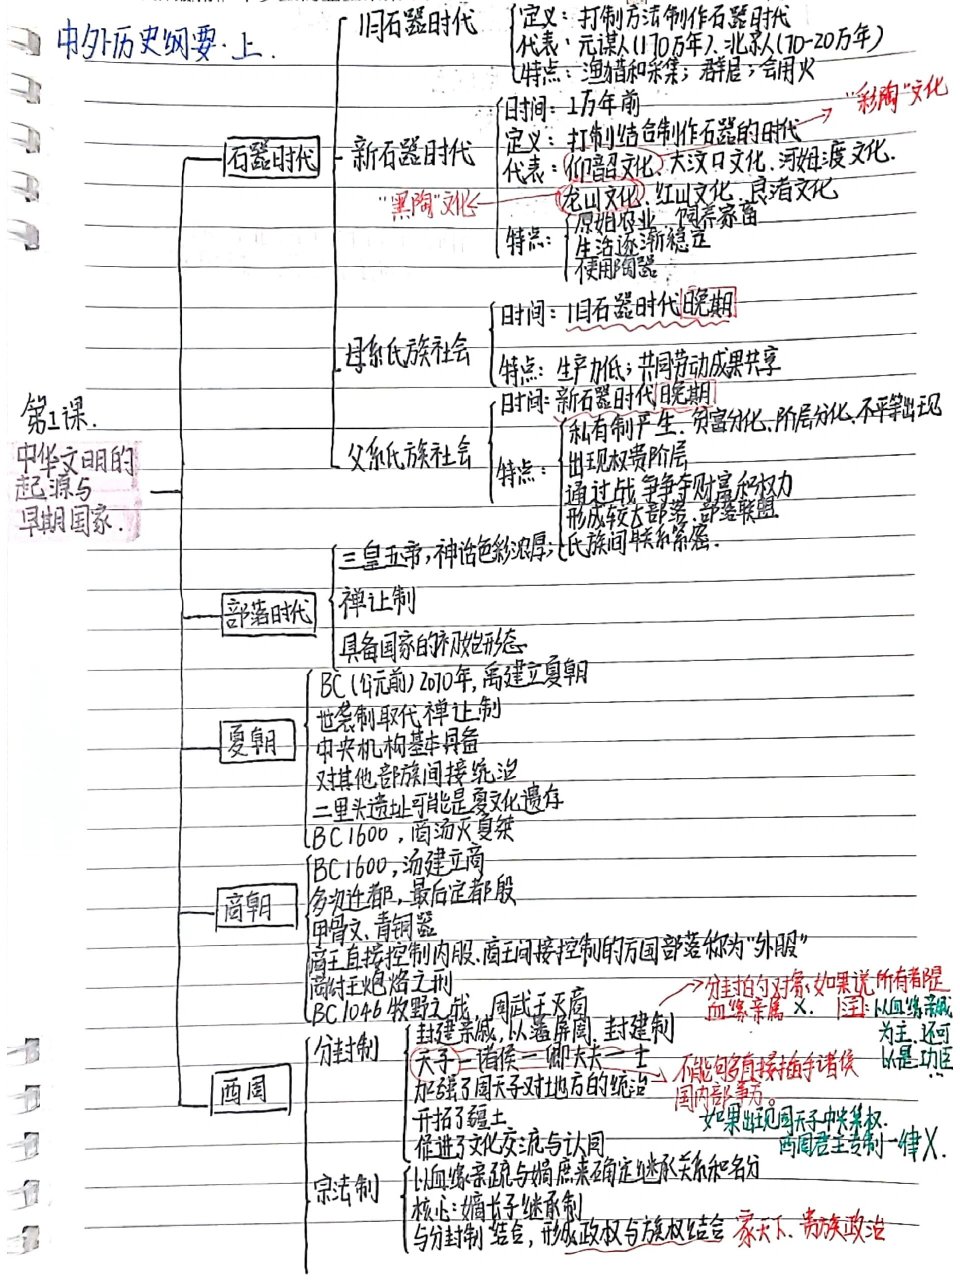 中外历史纲要·上.
第1课.
中华文明的
起源与
早期国家.
石器时代
旧石器时代
定义：打制方法制作石器时代
代表：元谋人(170万年)、北京人(70-20万年)
特点：渔猎和采集；群居；会用火
新石器时代
时间：1万年前
定义：打制结合制作石器的时代
代表：仰韶文化、大汶口文化、河姆渡文化、
龙山文化、红山文化、良渚文化
"彩陶"文化
"黑陶"文化
特点：
原始农业、饲养家畜
生活逐渐稳定
使用陶器
母系氏族社会
时间：旧石器时代晚期
特点：生产力低；共同劳动成果共享
父系氏族社会
时间：新石器时代晚期
特点：
私有制产生、贫富分化、阶层分化、不平等出现
出现权贵阶层
通过战争争夺财富和权力
形成较大部落、部落联盟
氏族间联系紧密.
部落时代
三皇五帝，神话色彩浓厚；
禅让制
具备国家的初始形态
夏朝
BC(公元前)2070年，禹建立夏朝
世袭制取代禅让制
中央机构基本具备
对其他部族间接统治
二里头遗址可能是夏文化遗存
BC1600，商汤灭夏桀
商朝
BC1600，汤建立商
多次迁都，最后定都殷
甲骨文、青铜器
商王直接控制内服、商王间接控制的方国部落称为"外服"
商纣王炮烙之刑
BC1046牧野之战，周武王灭商
西周
分封制
封建亲戚，以藩屏周，封建制
天子—诸侯—卿大夫—士
加强了周天子对地方的统治
开拓了疆土
促进了文化交流与认同
分封的对象：如果说所有都是
血缘亲属 X. 注：以血缘亲戚
为主，还可
以是功臣
…
不能够直接插手诸侯
国内部事务。
如果出现周天子中央集权.
西周君主专制一律X.
宗法制
以血缘亲疏与嫡庶来确定继承关系和名分
核心：嫡长子继承制
与分封制结合，形成政权与族权结合 家天下、贵族政治